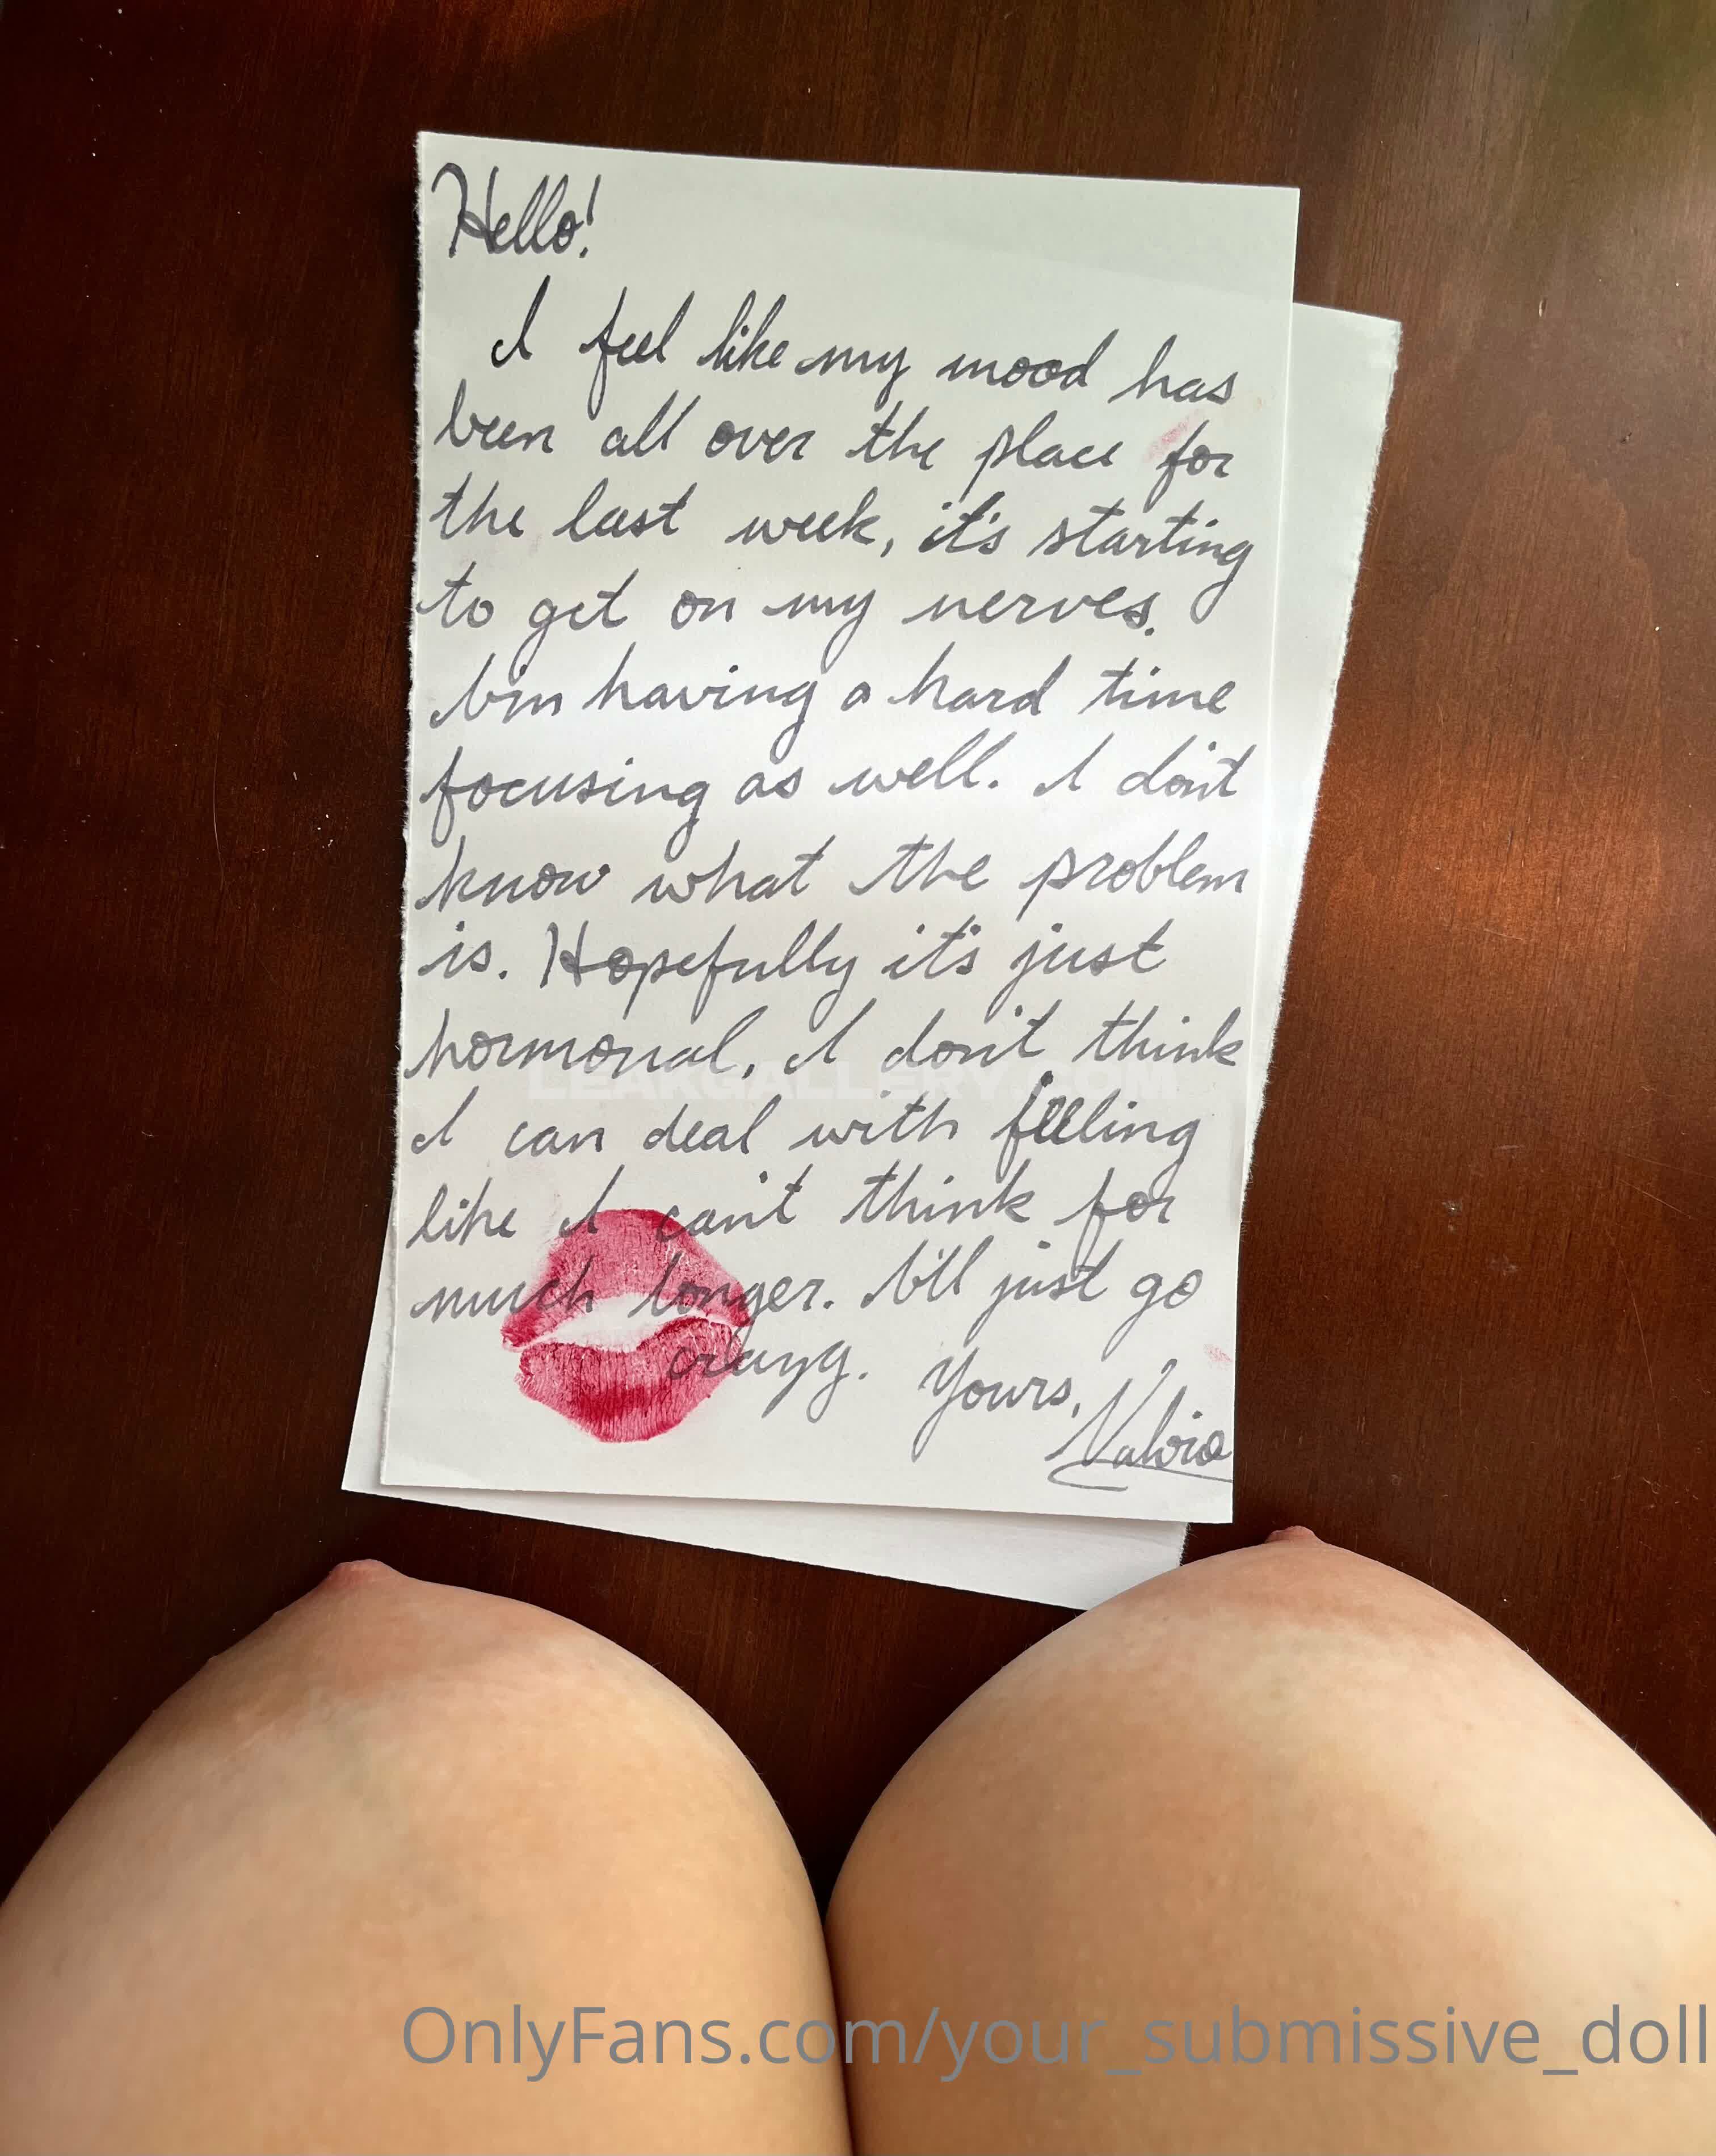 Hello!
I feel like my mood has
been all over the place for
the last week, it's starting
to get on my nerves.
I'm having a hard time
focusing as well. I don't
know what the problem
is. Hopefully it's just
hormonal, I don't think
LEAKGALLERY.COM
I can deal with feeling
like I can't think for
much longer. I'll just go
crazy. Yours,
OnlyFans.com/your_submissive_doll